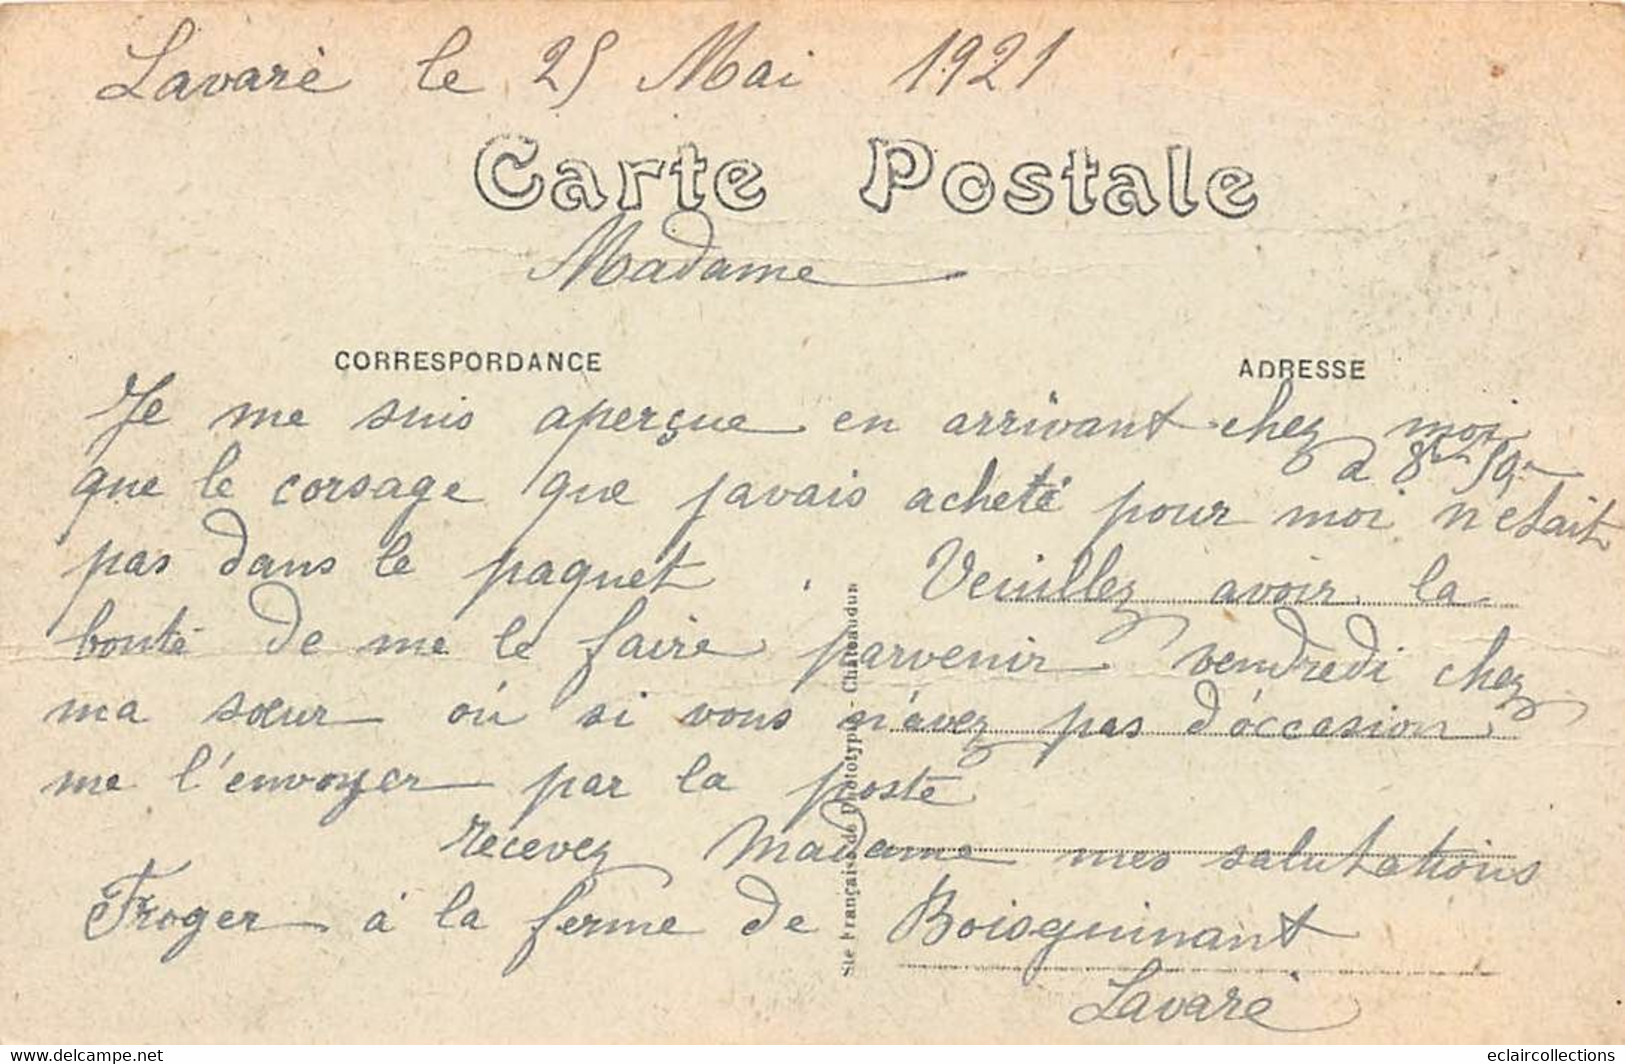 Lavaré le 25 Mai 1921
Carte Postale
Madame
CORRESPORDANCE
ADRESSE
Je me suis aperçue en arrivant chez moi
que le corsage que javais acheté pour moi n'etait
pas dans le paquet. Veuillez avoir la
bonté de me le faire parvenir vendredi chez
ma sœur où si vous n'avez pas d'occasion
me l'envoyer par la poste
recevez Madame mes salutations
Froger à la ferme de Boisguinant
Lavaré
Sté Française de Phototypie - Châteaudun
www.delcampe.net
eclaircollections